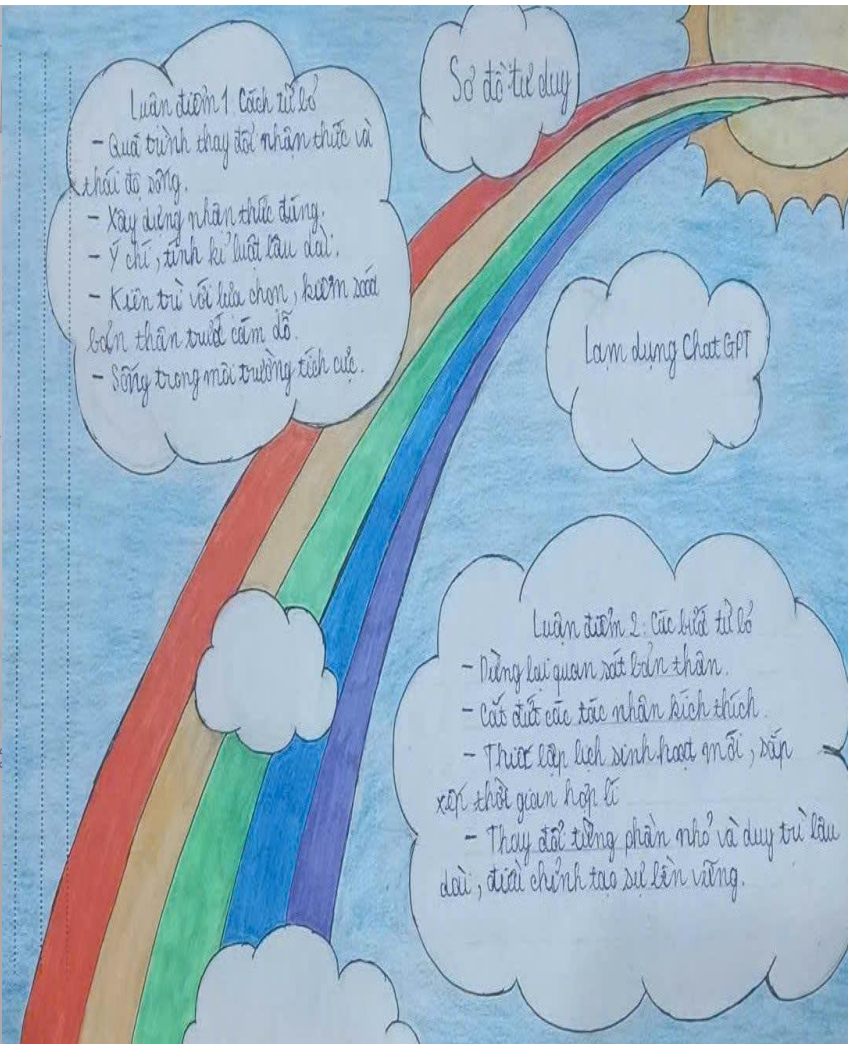 Sơ đồ tư duy
Luận điểm 1. Cách từ bỏ
- Quá trình thay đổi nhận thức và
thái độ sống.
- Xây dựng nhận thức đúng.
- Ý chí, tính kỉ luật lâu dài.
- Kiên trì với lựa chọn, kiểm soát
bản thân trước cám dỗ.
- Sống trong môi trường tích cực.
Lạm dụng Chat GPT
Luận điểm 2. Các bước từ bỏ
- Dừng lại quan sát bản thân.
- Cắt đứt các tác nhân kích thích.
- Thiết lập lịch sinh hoạt mới, sắp
xếp thời gian hợp lí
- Thay đổi từng phần nhỏ và duy trì lâu
dài, điều chỉnh tạo sự bền vững.